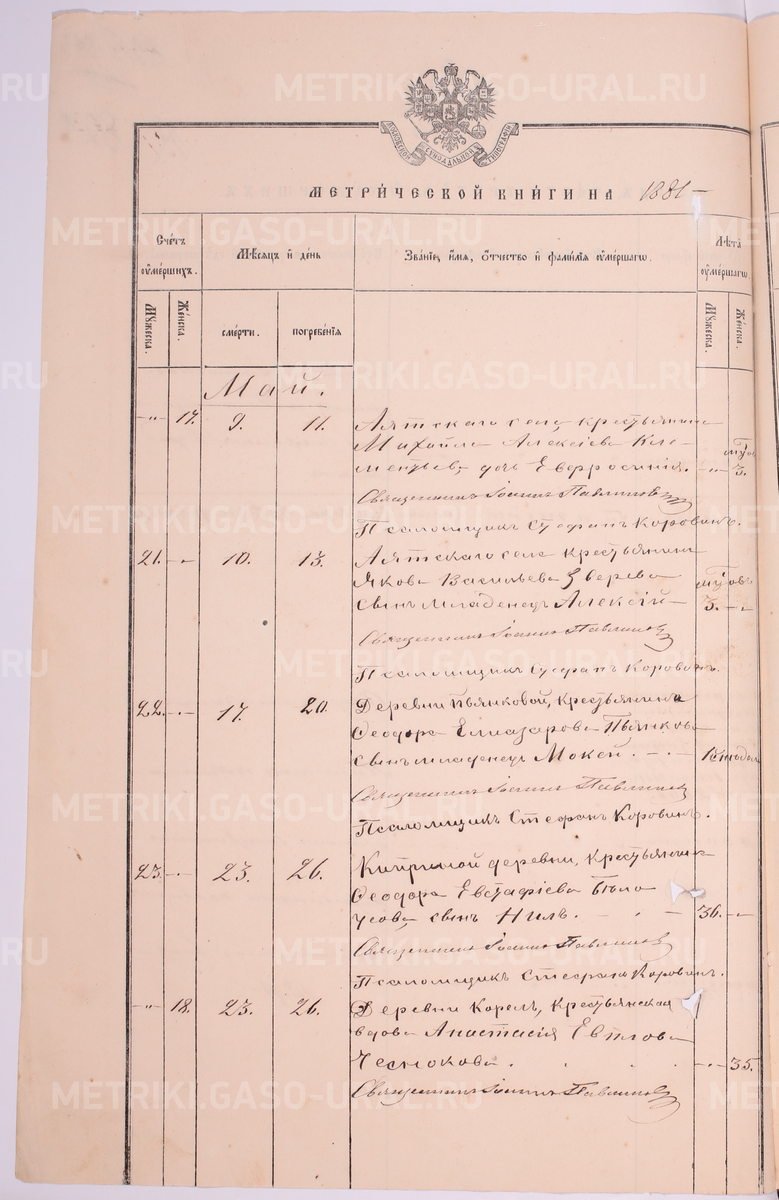 МЕТРИ́ЧЕСКОЙ КНИ́ГИ НА 1881
Сче́тъ ᲂу҆ме́ршихъ.
Мѣ́сяцъ и҆ де́нь
Зва́нїе, и҆́мѧ, ѻ҆́тчество и҆ фамѝлїѧ ᲂу҆ме́ршагѡ.
Лѣ́та ᲂу҆ме́ршагѡ
Мꙋ́жеска.
Же́нска.
сме́рти.
погребе́нїѧ
Мꙋ́жеска.
Же́нска.
Май.
-"- 17. 9. 11. Аятскаго села крестьянина
Михаила Алексіева
дочь Евфросинія. -"- 3.
Священникъ Іоаннъ Павлиновъ
Псаломщикъ Стефанъ Коровинъ.
21. -"- 10. 13. Аятскаго села крестьянина
Якова Васильева Зверева
сынъ младенецъ Алексій 3. -"-
Священникъ Іоаннъ Павлиновъ
Псаломщикъ Стефанъ Коровинъ.
22. -"- 17. 20. Деревни Пьянковой, крестьянина
Ѳеодора Елиазарова Пьянкова
сынъ младенецъ Мокей.
Священникъ Іоаннъ Павлиновъ
Псаломщикъ Стефанъ Коровинъ.
23. -"- 23. 26. деревни, крестьянина
Ѳеодора Евстафіева Бѣло
усова, сынъ Нилъ. 36. -"-
Священникъ Іоаннъ Павлиновъ
Псаломщикъ Стефанъ Коровинъ.
-"- 18. 23. 26. Деревни Корелъ, Крестьянская
вдова Анастасія Евплова
Чеснокова. -"- 35.
Священникъ Іоаннъ Павлиновъ
METRIKI.GASO-URAL.RU